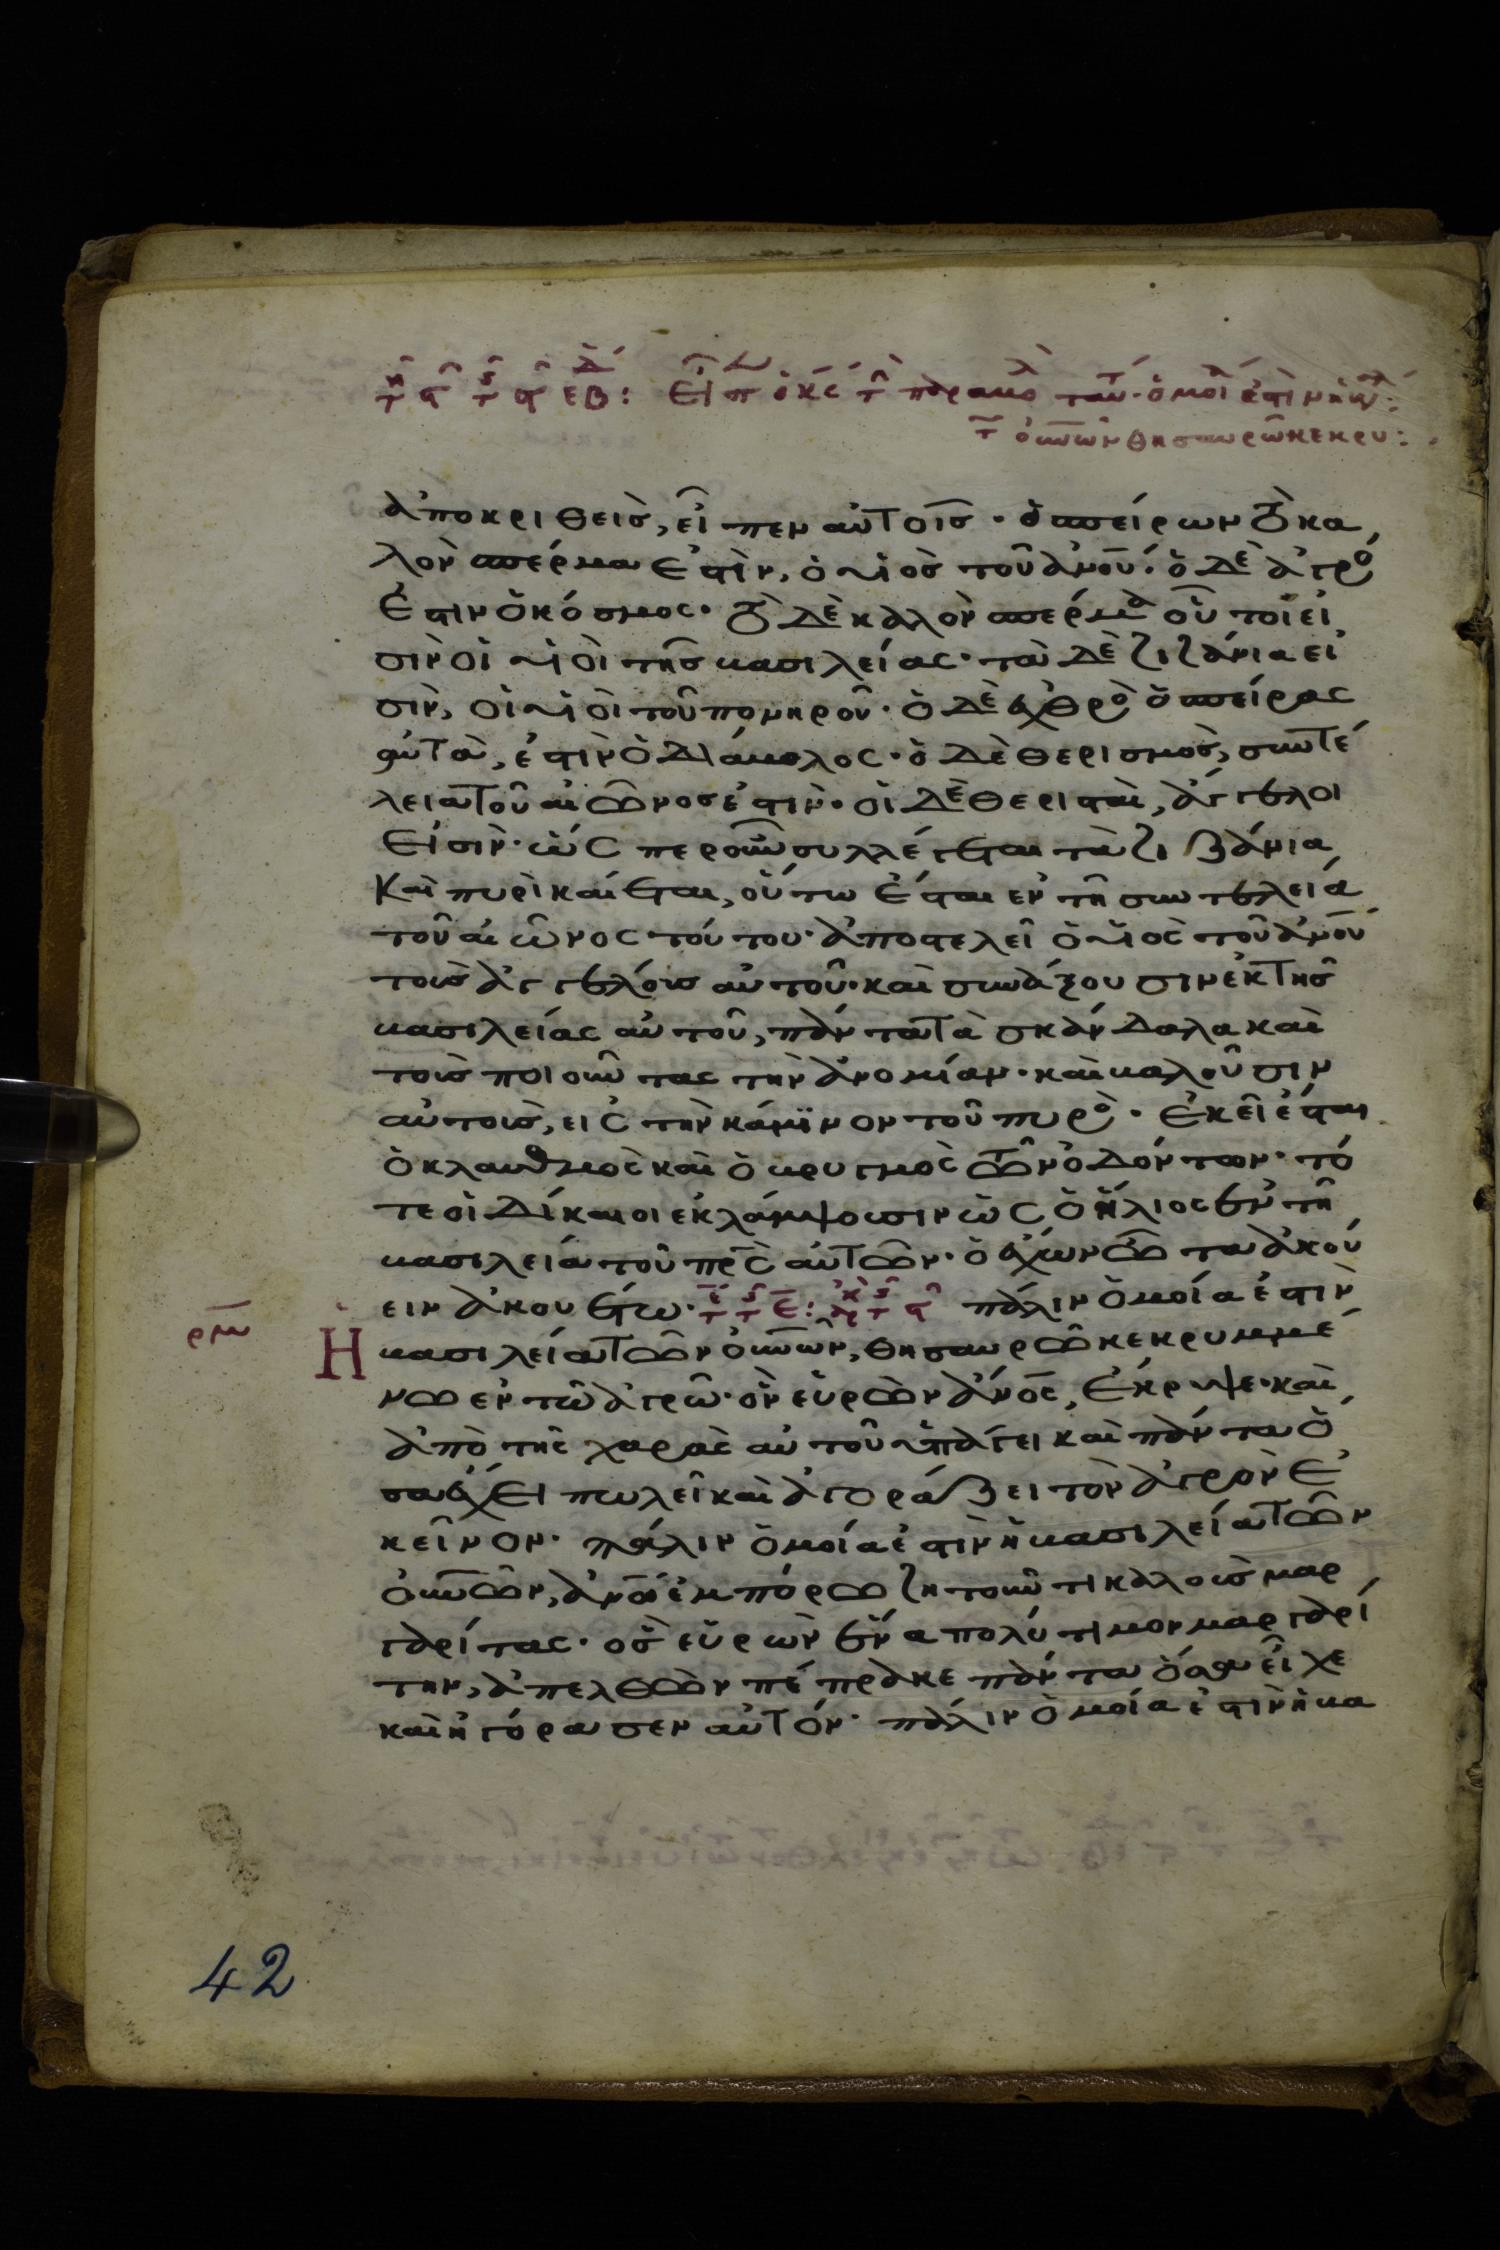 εἶπ ὁ κς τ παραβο ταύτ· ὁμοί ἐστὶν ἡ βα:
τ οὐνῶν θησαυρῶ κεκρυ:
ἀποκριθεὶς, εἶπεν αὐτοῖς· ὁ σπείρων τὸ κα
λὸν σπέρμα ἐστὶν, ὁ υἱὸς τοῦ ἀνου· ὁ δὲ ἀγρὸ
ἐστιν ὁ κόσμος· τὸ δὲ καλὸν σπέρμα οὗτοί εἰ
σὶν οἱ υἱοὶ τῆς βασιλείας· τὰ δὲ ζιζάνια εἰ
σὶν, οἱ υἱοὶ τοῦ πονηροῦ· ὁ δὲ ἐχθρὸ ὁ σπείρας
αὐτὰ, ἐστὶν ὁ διάβολος· ὁ δὲ θερισμὸς, συντέ
λεια τοῦ αἰῶνος ἐστιν· οἱ δὲ θερισταὶ, ἄγγελοι
εἰσὶν· ὥσπερ οὖν συλλέγεται τὰ ζιζάνια
καὶ πυρὶ καίεται, οὕτω ἔσται ἐν τῆ συντελεία
τοῦ αἰῶνος τούτου· ἀποστελεῖ ὁ υἱὸς τοῦ ἀνου
τοὺς ἀγγέλους αὐτοῦ· καὶ συνάξουσιν ἐκ τῆς
βασιλείας αὐτοῦ, πάντα τὰ σκάνδαλα καὶ
τοὺς ποιοῦντας τὴν ἀνομίαν· καὶ βαλοῦσιν
αὐτοὺς, εἰς τὴν κάμϊνον τοῦ πυρὸ· ἐκεῖ ἔσται
ὁ κλαυθμὸς καὶ ὁ βρυγμὸς τῶν ὀδόντων· τό
τε οἱ δίκαιοι ἐκλάμψουσιν ὡς ὁ ἥλιος ἐν τῆ
βασιλεία τοῦ πρς αὐτῶν· ὁ ἔχων ὦτα ἀκού
ειν ἀκουέτω· πάλιν ὁμοία ἐστὶν
ρμ Ἡ βασιλεία τῶν οὐνῶν, θησαυρῶ κεκρυμμέ
νω ἐν τῶ ἀγρῶ· ὃν εὑρὼν ἀνος, ἔκρυψε· καὶ
ἀπὸ τῆς χαρᾶς αὐτοῦ ὑπάγει καὶ πάντα ὅ
σα ἔχει πωλεῖ καὶ ἀγοράζει τὸν ἀγρὸν ἐ
κεῖνον· πάλιν ὁμοία ἐστὶν ἡ βασιλεία τῶν
οὐνῶν, ἀνω ἐμπόρω ζητοῦντι καλοὺς μαρ
γαρίτας· ὃς εὑρὼν ἕνα πολύτιμον μαργαρί
την, ἀπελθὼν πέπρακε πάντα ὅσα εἶχε
καὶ ἠγόρασεν αὐτόν· πάλιν ὁμοία ἐστὶν ἡ βα
42